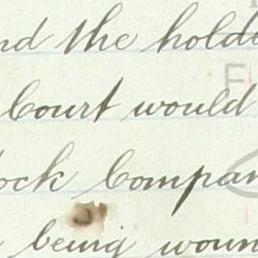 nd the hold
Court would
ock Compan
being woun